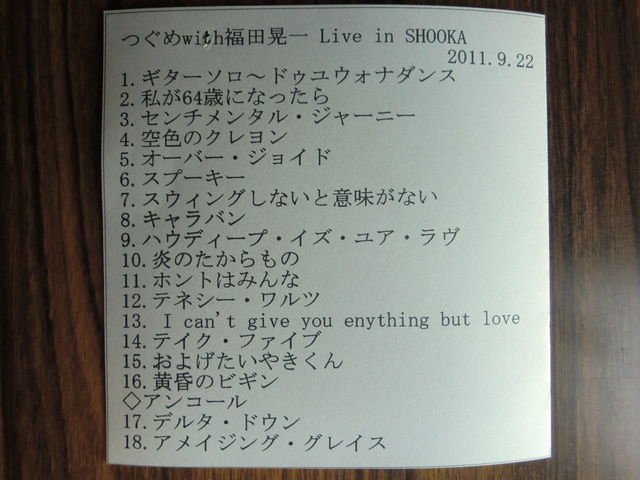 つぐめwith福田晃一 Live in SHOOKA
2011.9.22
1. ギターソロ～ドゥユウォナダンス
2. 私が64歳になったら
3. センチメンタル・ジャーニー
4. 空色のクレヨン
5. オーバー・ジョイド
6. スプーキー
7. スウィングしないと意味がない
8. キャラバン
9. ハウディープ・イズ・ユア・ラヴ
10. 炎のたからもの
11. ホントはみんな
12. テネシー・ワルツ
13. I can't give you enything but love
14. テイク・ファイブ
15. およげたいやきくん
16. 黄昏のビギン
◇アンコール
17. デルタ・ドウン
18. アメイジング・グレイス